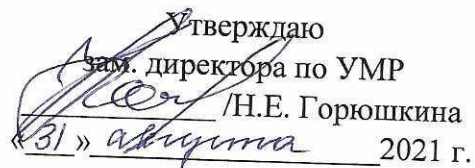 Утверждаю
зам. директора по УМР
/Н.Е. Горюшкина
«31» августа 2021 г.